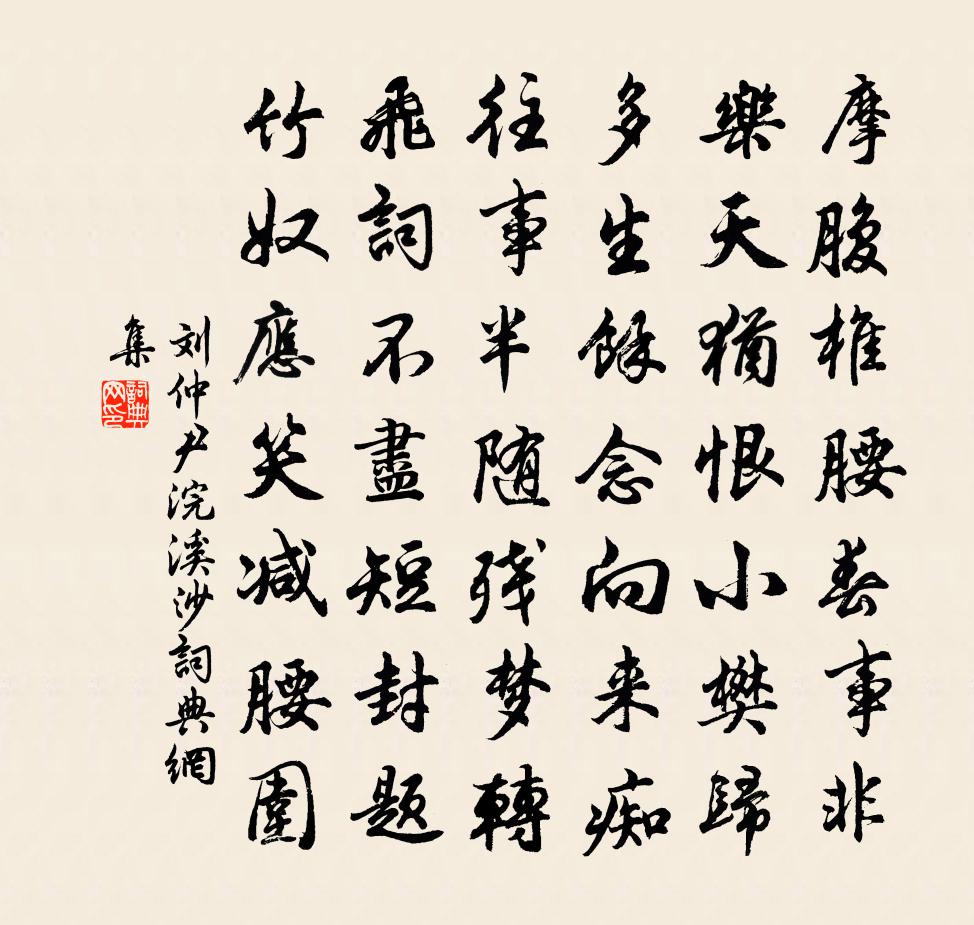 摩腹椎腰春事非
樂天猶恨小樊歸
多生餘念向来痴
往事半随残梦轉
飛詞不盡短封题
竹奴應笑减腰圍
刘仲尹浣溪沙詞典網
集
詞典网印